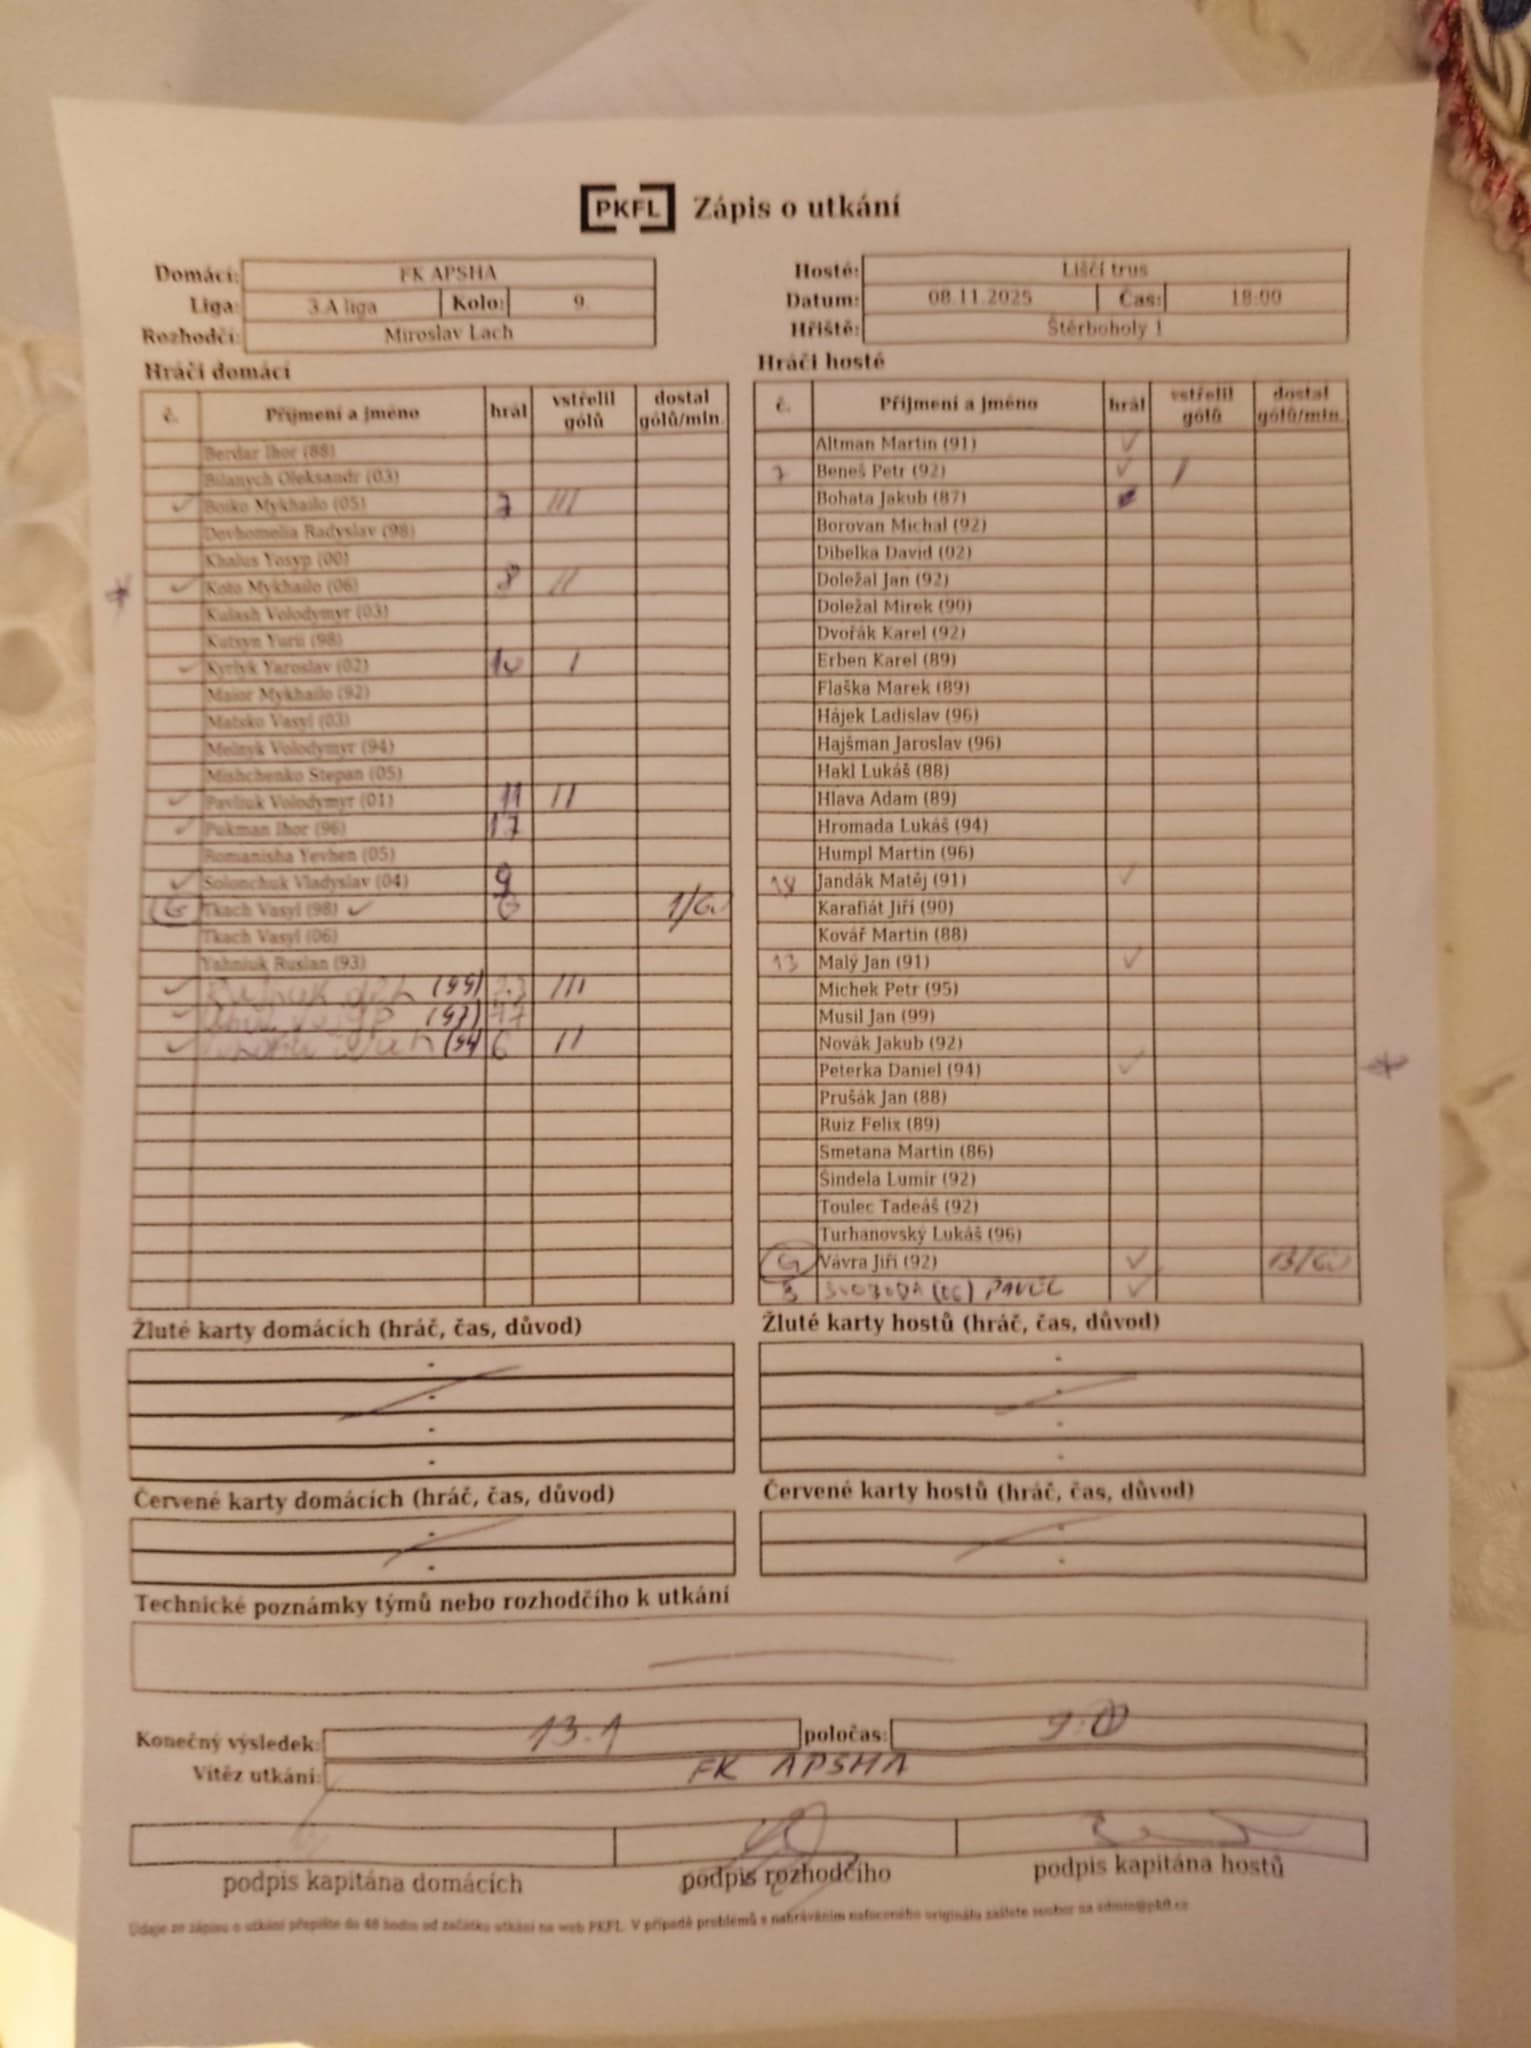 PKFL Zápis o utkání
Domácí: FK APSHA Hosté: Liščí trus
Liga: 3.A liga Kolo: 9. Datum: 08.11.2025 Čas: 18:00
Rozhodčí: Miroslav Lach Hřiště: Štěrboholy 1
Hráči domácí
č. Příjmení a jméno hrál vstřelil gólů dostal gólů/min.
Berdar Ihor (88)
Bilanych Oleksandr (03)
✓ Bosko Mykhailo (05) 7 III
Dovhomelia Radyslav (98)
Khalus Yosyp (00)
✓ Koto Mykhailo (06) 8 II
Kulash Volodymyr (03)
Kutsyn Yurii (98)
✓ Kyrlyk Yaroslav (02) 10 I
Maior Mykhailo (92)
Matsko Vasyl (03)
Melnyk Volodymyr (94)
Mishchenko Stepan (05)
✓ Pavliuk Volodymyr (01) 11 II
✓ Pukman Ihor (96) 17
Romanisha Yevhen (05)
✓ Solonchuk Vladyslav (04) 9
G Tkach Vasyl (98) ✓ G 1/60
Tkach Vasyl (06)
Yahniuk Ruslan (93)
✓ (99) 23 III
✓ (97) 77
✓ (94) 6 II
Hráči hosté
č. Příjmení a jméno hrál vstřelil gólů dostal gólů/min.
Altman Martin (91) ✓
7 Beneš Petr (92) ✓ I
Bohata Jakub (87)
Borovan Michal (92)
Dibelka David (92)
Doležal Jan (92)
Doležal Mirek (90)
Dvořák Karel (92)
Erben Karel (89)
Flaška Marek (89)
Hájek Ladislav (96)
Hajšman Jaroslav (96)
Hakl Lukáš (88)
Hlava Adam (89)
Hromada Lukáš (94)
Humpl Martin (96)
18 Jandák Matěj (91) ✓
Karafiát Jiří (90)
Kovář Martin (88)
13 Malý Jan (91) ✓
Michek Petr (95)
Musil Jan (99)
Novák Jakub (92)
Peterka Daniel (94) ✓
Prušák Jan (88)
Ruiz Felix (89)
Smetana Martin (86)
Šindela Lumír (92)
Toulec Tadeáš (92)
Turhanovský Lukáš (96)
G Vávra Jiří (92) ✓ 13/60
SVOBODA PAVEL ✓
Žluté karty domácích (hráč, čas, důvod) Žluté karty hostů (hráč, čas, důvod)
Červené karty domácích (hráč, čas, důvod) Červené karty hostů (hráč, čas, důvod)
Technické poznámky týmů nebo rozhodčího k utkání
Konečný výsledek: 13:1 poločas: 9:0
Vítěz utkání: FK APSHA
podpis kapitána domácích podpis rozhodčího podpis kapitána hostů
Údaje ze zápisu o utkání přepište do 48 hodin od začátku utkání na web PKFL. V případě problémů s nahráváním nafoceného originálu zašlete soubor na admin@pkfl.cz